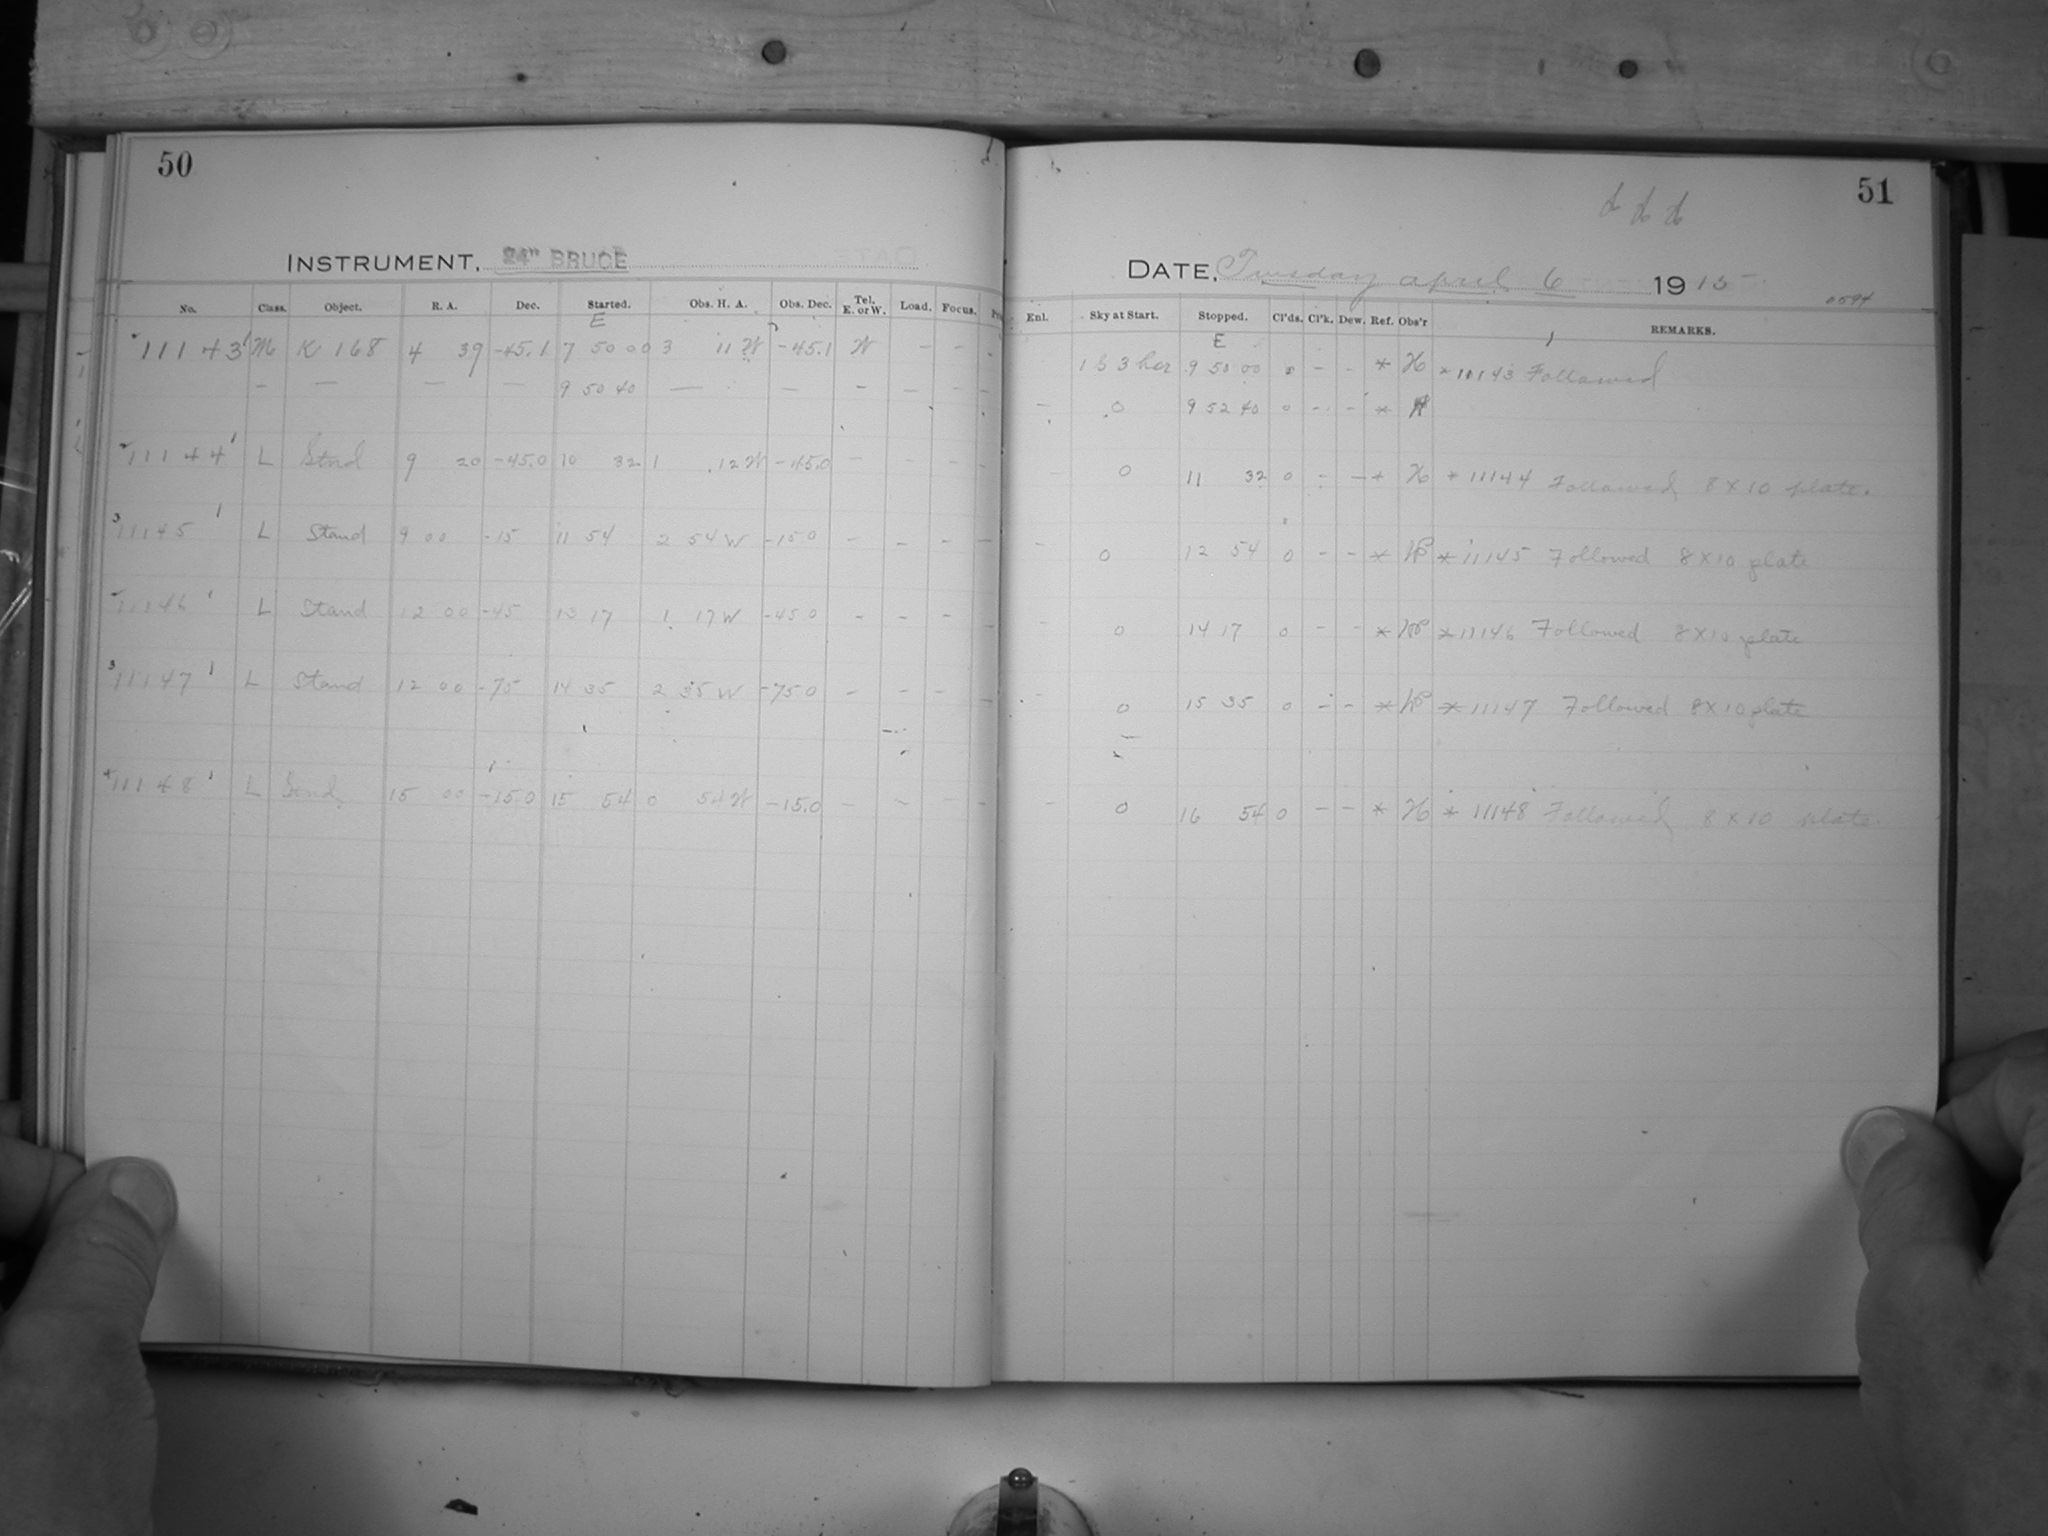 50
INSTRUMENT, 24" BRUCE
No. Class. Object. R. A. Dec. Started. Obs. H. A. Obs. Dec. Tel. E. or W. Load. Focus.
E
11143 M K 168 4 39 -45.1 7 50 00 3 11 W -45.1 W - -
- - - - 9 50 40 - - - - -
11144 L Stnd 9 20 -45.0 10 32 1 12 W -45.0 - - -
11145 L Stand 9 00 -15 11 54 2 54 W -15 0 - - -
11146 L Stand 12 00 -45 13 17 1 17 W -45 0 - - -
11147 L Stand 12 00 -75 14 35 2 35 W -75 0 - - -
11148 L 15 00 -15.0 15 54 0 54 W -15.0 - - -
51
DATE, Tuesday april 6 1915
0594
Enl. Sky at Start. Stopped. Cl'ds. Cl'k. Dew. Ref. Obs'r REMARKS.
E
9 50 00 - - * * 11143 Followed
- 0 9 52 40 0 - - *
0 11 32 0 - - * * 11144 Followed 8 X 10 plate.
- 0 12 54 0 - - * * 11145 Followed 8 X 10 plate
0 14 17 0 - - * * 11146 Followed 8 X 10 plate
- 0 15 35 0 - - * * 11147 Followed 8 X 10 plate
- 0 16 54 0 - - * * 11148 Followed 8 X 10 plate